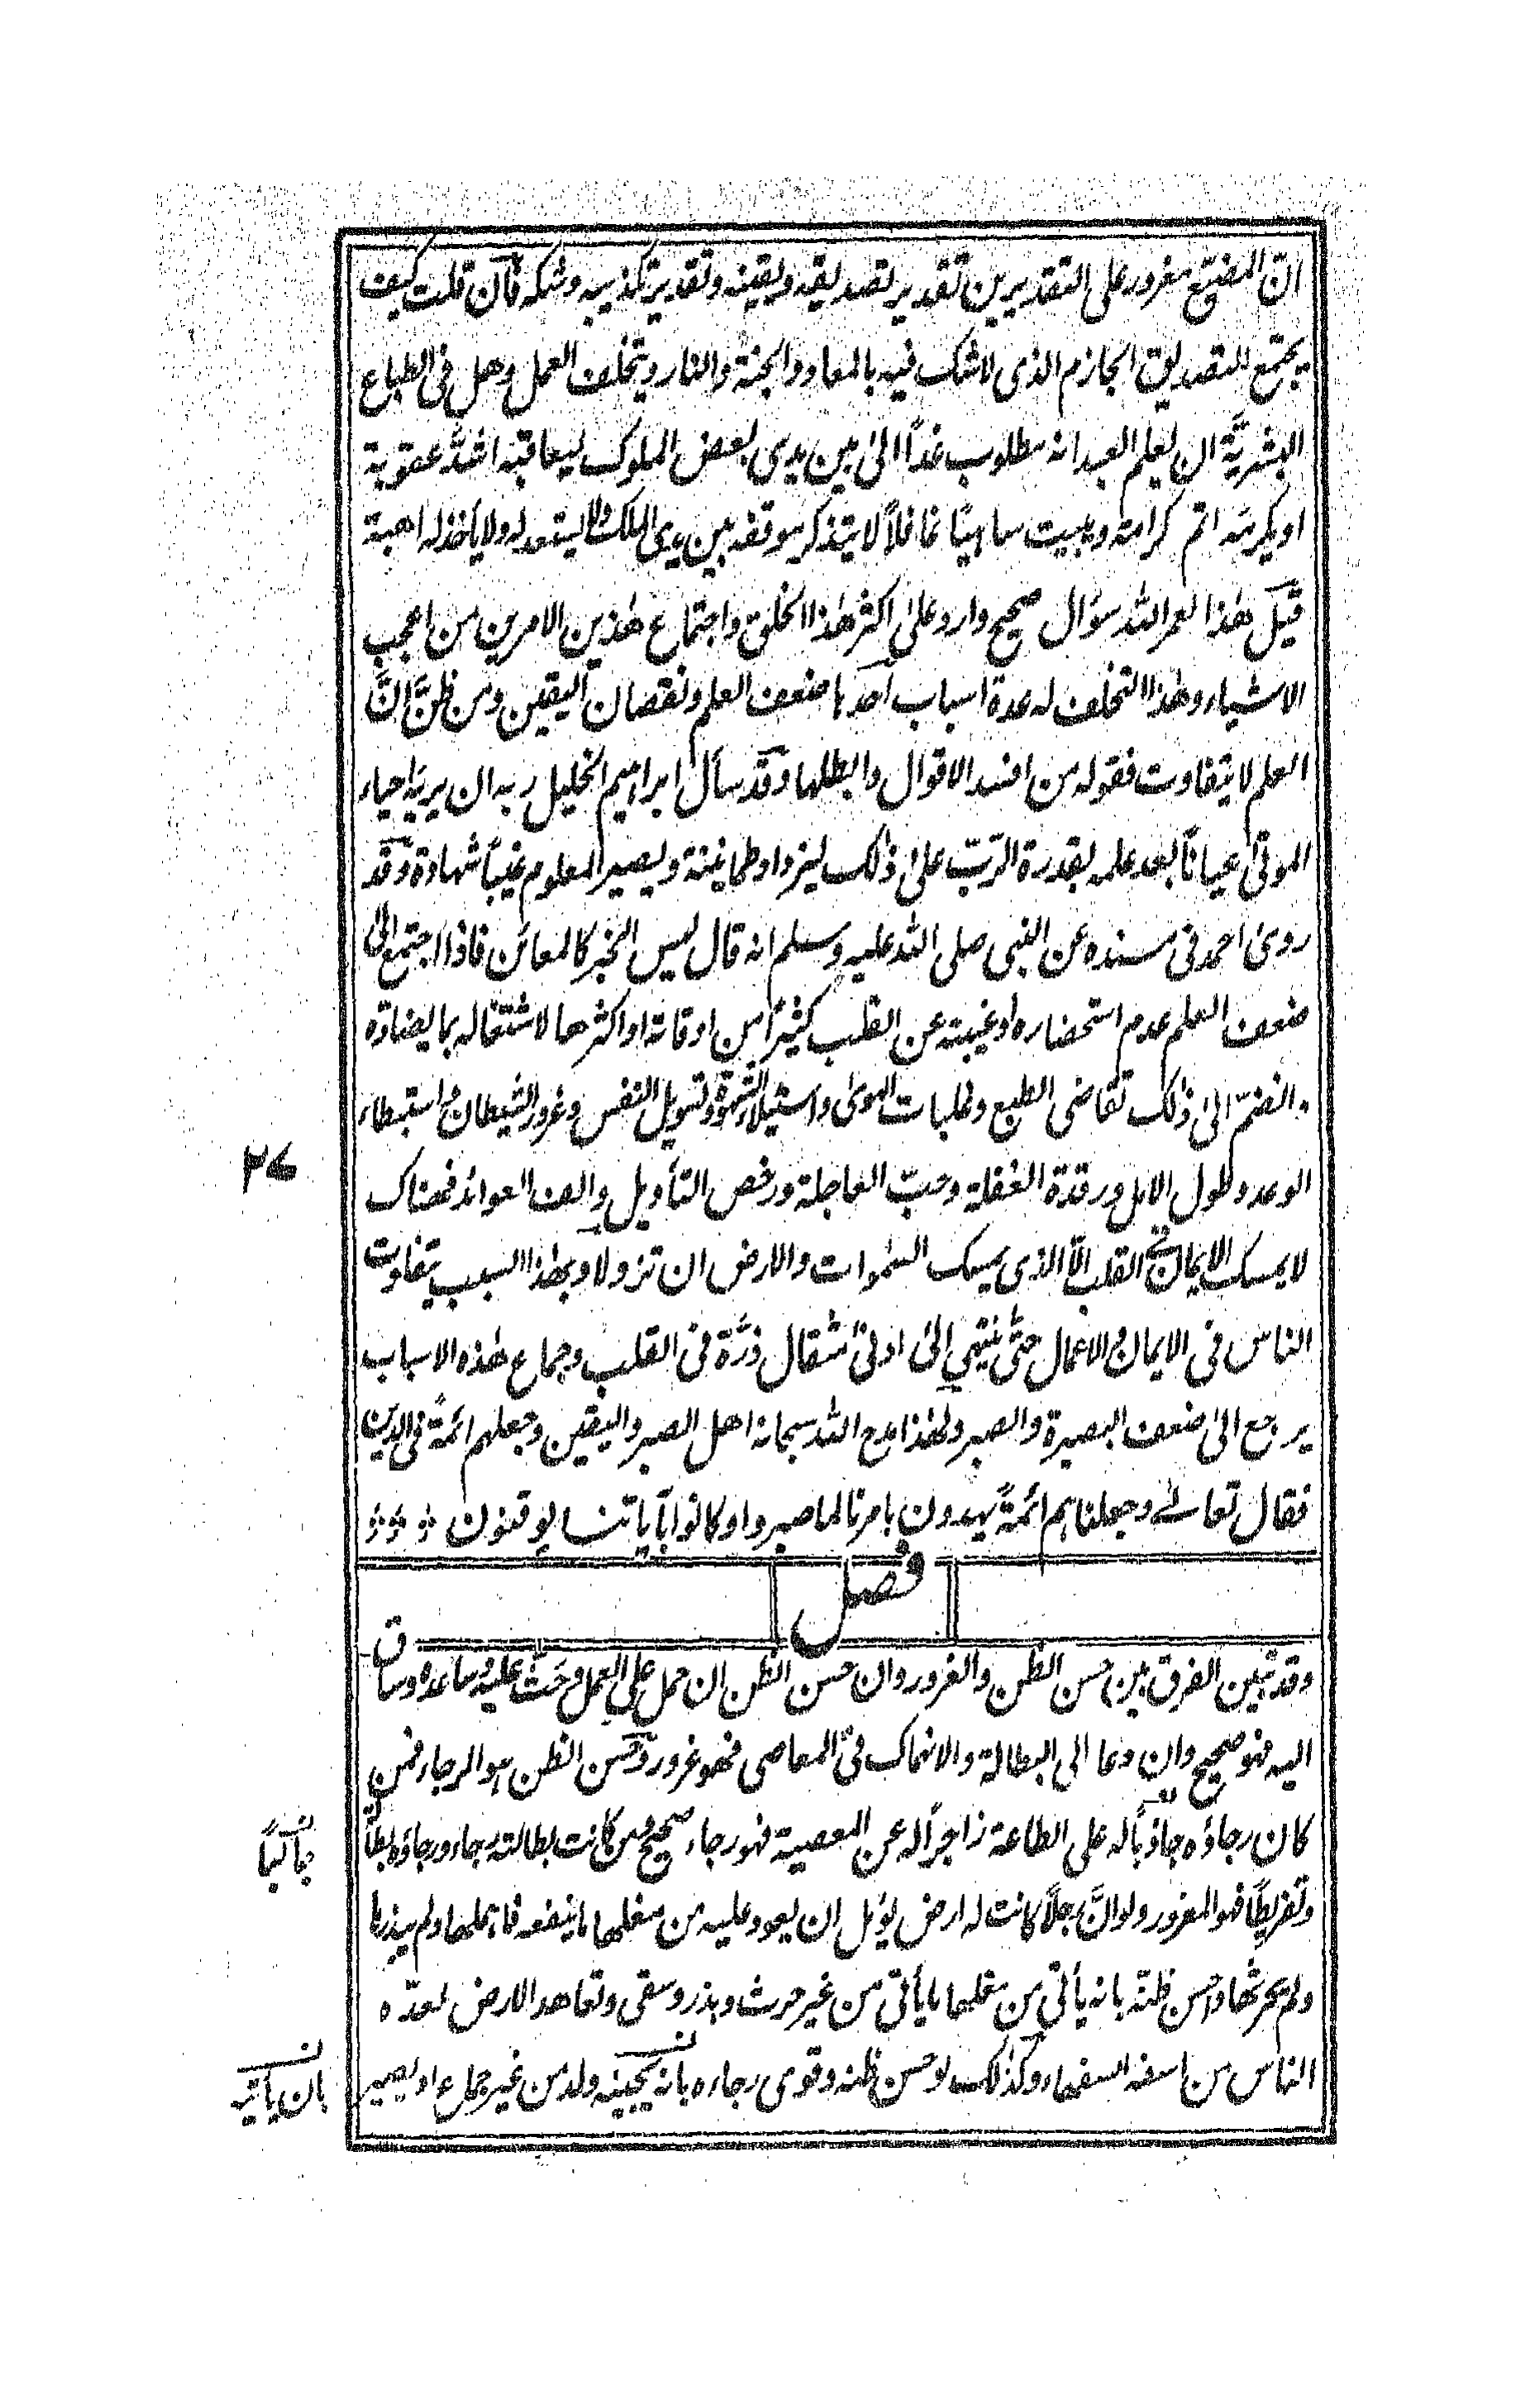 انّ المضيّع مغرور على التقديرين تقدير تصديقه ويقينه وتقدير تكذيبه وشكه فان قلت كيف
يجتمع التصديق الجازم الذى لاشك فيه بالمعاد والجنة والنار ويتخلف العمل وهل فى الطباع
البشريّة ان يعلم العبد انه مطلوب غداً الىٰ بين يدى بعض الملوك ليعاقبه اشدّ عقوبة
او يكرمه اتم كرامة ويبيت ساهيًا غافلاً لا يتذكر موقفه بين يدى الملك ولا يستعد له ولا يأخذ له اهبة
قيل هٰذا لعمر الله سؤال صحيح وارد علىٰ اكثر هٰذا الخلق واجتماع هٰذين الامرين من اعجب
الاشياء وهٰذا التخلف له عدة اسباب احدها ضعف العلم ونقصان اليقين ومن ظنّ انّ
العلم لا يتفاوت فقوله من افسد الاقوال وابطلها وقد سأل ابراهيم الخليل ربه ان يريه احياء
الموتىٰ عياناً بعد علمه بقدرة الربّ علىٰ ذٰلك ليزداد طمانينة ويصير المعلوم غيباً شهادة وقد
روىٰ احمد فى مسنده عن النبى صلى الله عليه وسلم انه قال ليس الخبر كالمعائن فاذا اجتمع الىٰ
ضعف العلم عدم استحضاره او غيبته عن القلب كثيراً من اوقاته او اكثرها لاشتغاله بما يضادّه
وانضمّ الىٰ ذٰلك تقاضى الطبع وغلبات الهوىٰ واستيلاء الشهوة وتسويل النفس وغرور الشيطان واستبطاء
الوعد وطول الامل ورقدة الغفلة وحبّ العاجلة ورخص التأويل والف العوائد فهناك
لا يمسك الايمان فى القلب الّا الذى يمسك السمٰوات والارض ان تزولا وبهٰذا السبب يتفاوت
الناس فى الايمان والاعمال حتّٰى ينتهى الىٰ ادنىٰ مثقال ذرّة فى القلب وجماع هٰذه الاسباب
يرجع الىٰ ضعف البصيرة والصبر ولهٰذا مدح الله سبحانه اهل الصبر واليقين وجعلهم ائمة فى الدين
فقال تعالىٰ وجعلناهم ائمةً يهدون بامرنا لما صبروا وكانوا بآياتنا يوقنون
فصل
وقد تبين الفرق بين حسن الظن والغرور وان حسن الظن ان حمل على العمل وحثّ عليه وساعده وساق
اليه فهو صحيح وان دعا الى البطالة والانهماك فى المعاصى فهو غرور وحسن الظن هو الرجاء فمن
كان رجاؤه جاذباً له على الطاعة زاجراً له عن المعصية فهو رجاء صحيح ومن كانت بطالته رجاء ورجاؤه بطالة
وتفريطًا فهو المغرور ولو انّ رجلاً كانت له ارض يؤمل ان يعود عليه من مغلها ما ينفعه فاهملها ولم يبذرها
ولم يحرثها واحسن ظنّه بانه يأتى من مغلها ما يأتى من غير حرث وبذر وسقى وتعاهد الارض لعدّه
الناس من اسفه السفهاء وكذٰلك لو حسن ظنه وقوى رجاءه بانه يجيئه ولد من غير جماع او يصير
٢٧
بان يأتيه